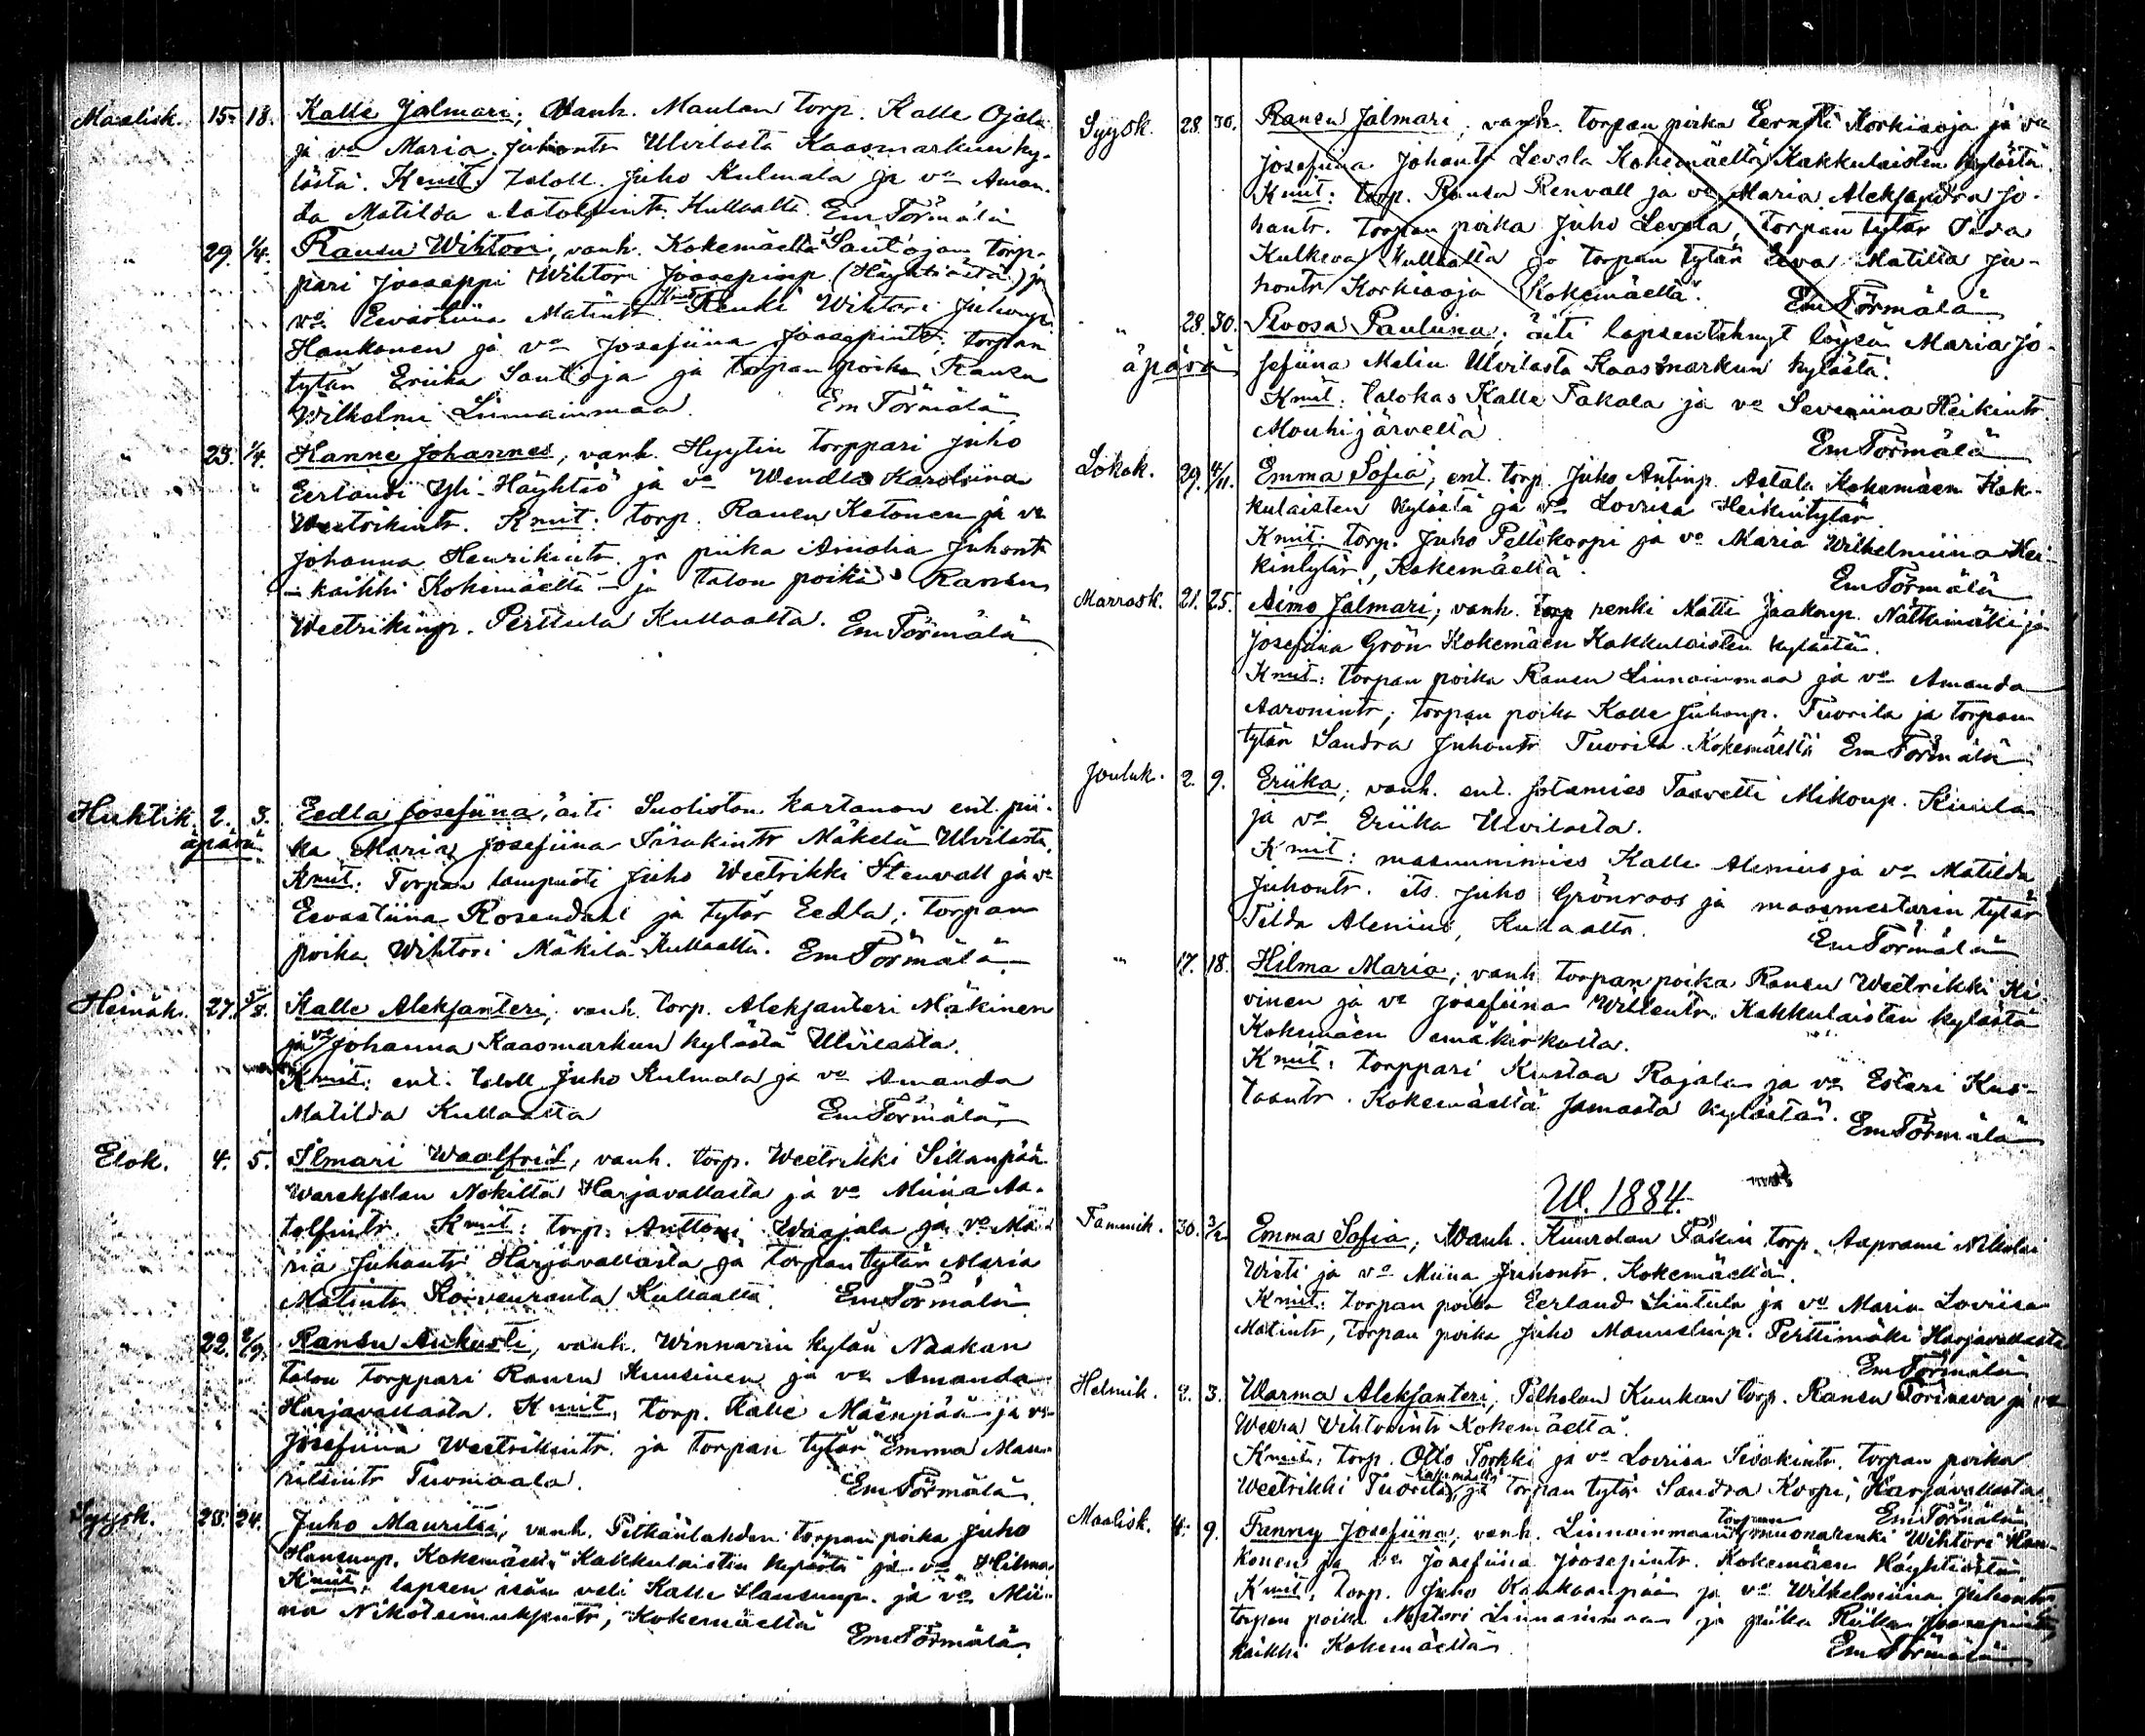 Maalisk. 15. 18. Kalle Jalmari; Wanh. Maulan torp. Kalle Ojala
ja vo Maria Juhontr Ulvilasta Kaasmarkun ky-
lästä. Kmit. taloll. Juho Kulmala ja vo Aman-
da Matilda Aatolfintr. Kullaalta. Em Törmälä
" 29. 1/4. Ransu Wihtori, vanh. Kokemäeltä Santojan torp-
pari Jooseppi Wihtori Joosepinp. (Häyhtiöstä) ja
vo Eevastiina Matintr. Kmit. Renki Wihtori Juhonp.
Haukonen ja vo Josefiina Joosepintr, torpan
tytär Eriika Santoja ja torpan poika Ransu
Wilhelmi Linnainmaa. Em Törmälä
" 23. 1/4. Hanne Johannes, vanh. Hyytin torppari Juho
Eerlandi Yli-Häyhtiö ja vo Wendla Karoliina
Weetrikintr. Kmit: torp. Ransu Ketonen ja vo
Johanna Henrikintr. ja piika Amalia Juhontr
- kaikki Kokemäeltä - ja talon poika Ransu
Weetrikinp. Perttula Kullaalta. Em Törmälä
Huhtik. 2. 3. Eedla Josefiina, äiti Suoliston kartanon ent. pii-
äpärä ka Maria Josefiina Iisakintr Mäkelä Ulvilasta.
Kmit: Torpan lampuoti Juho Weetrikki Stenvall ja vo
Eevastiina Rosendahl ja tytär Eedla; torpan
poika Wihtori Mäkilä Kullaalta. Em Törmälä
Heinäk. 27. 5/8. Kalle Aleksanteri, vanh. torp. Aleksanteri Mäkinen
ja vo Johanna Kaasmarkun kylästä Ulvilasta.
Kmit: ent. taloll. Juho Kulmala ja vo Amanda
Matilda Kullaalta Em Törmälä
Elok. 4. 5. Ilmari Waalfrid, vanh. torp. Weetrikki Sillanpää
Nokilta Harjavallasta ja vo Miina Aa-
tolfintr. Kmit: torp. Anttoni Waajala ja vo Ma-
ria Juhontr Harjavallasta ja torpan tytär Maria
Matintr Koivunranta Kullaalta. Em Törmälä
" 22. 2/9. Ransu Aukusti, vanh. Winnarin kylän Naakan
talon torppari Ransu Kuusinen ja vo Amanda
Harjavallasta. Kmit. torp. Kalle Mäenpää ja vo
Josefiina Weetrikintr. ja torpan tytär Emma Mau-
ritsintr Tuomaala. Em Törmälä
Syysk. 23. 24. Juho Mauritsi, vanh. Pitkänlahden torpan poika Juho
Hansunp. Kokemäen Kakkulaisten kylästä ja vo Hilma.
Kmit. lapsen isän veli Kalle Hansunp. ja vo Mii-
na Nikoteemuksentr, Kokemäeltä
Em Törmälä.
Syysk. 28. 30. Ransu Jalmari, vanh. torpan poika Eernsti Korkiaoja ja vo
Josefiina Johantr Levola Kokemäeltä Kakkulaisten kylästä.
Kmit: torp. Ransu Renvall ja vo Maria Aleksandra Jo-
hantr. torpan poika Juho Levola, torpan tytär Iida
Kulkeva Kullaalta ja torpan tytär Eeva Matilta Ju-
hontr Korkiaoja Kokemäeltä. Em Törmälä
" 28. 30. Roosa Pauliina; äiti lapsentehnyt löysä Maria Jo-
äpärä sefiina Malin Ulvilasta Kaasmarkun kylästä.
Kmit. talokas Kalle Takala ja vo Seveniina Heikintr
Mouhijärveltä Em Törmälä
Lokak. 29. 4/11. Emma Sofia, ent. torp. Juho Antinp. Astala Kokemäen Kak-
kulaisten kylästä ja vo Lovisa Heikintytär
Kmit: torp. Juho Peltokorpi ja vo Maria Wilhelmiina Hei-
kintytär, Kokemäeltä. Em Törmälä
Marrask. 21. 25. Aimo Jalmari, vanh. torp renki Matti Jaakonp. Nättinmäki ja
Josefiina Grön Kokemäen Kakkulaisten kylästä.
Kmit: torpan poika Ransu Linnainmaa ja vo Amanda
Aaronintr, torpan poika Kalle Juhonp. Tuorila ja torpan
tytär Sandra Juhontr Tuorila. Kokemäeltä Em Törmälä
Jouluk. 2. 9. Eriika, vanh. ent. sotamies Taavetti Mikonp. Kiula
ja vo Eriika Ulvilasta.
Kmit: masuunimies Kalle Alenius ja vo Matilda
Juhontr. its. Juho Grönroos ja maasmestarin tytär
Tilda Alenius, Kullaalta. Em Törmälä
" 17. 18. Hilma Maria, vanh torpan poika Ransu Weetrikki Ki-
vinen ja vo Josefiina Willentr. Kakkulaisten kylästä
Kokemäen emäkirkolta.
Kmit: torppari Kustaa Rajala ja vo Esteri Kus-
taantr. Kokemäeltä samasta kylästä. Em Törmälä
W. 1884.
Tammik. 30. 3/2. Emma Sofia; Wanh. Kuurolan Päkin torp. Aaprami Nikolai
Wisti ja vo Miina Juhontr. Kokemäeltä.
Kmit: torpan poika Eerland Liutula ja vo Maria Loviisa
Matintr, torpan poika Juho Manuelinp. Perttimäki Harjavallasta
Em Törmälä
Helmik. 2. 3. Warma Aleksanteri, Pelholan Kuukan torp. Ransu Torineva ja vo
Weera Wihtorintr Kokemäeltä.
Kmit: torp. Otto Torkki ja vo Loviisa Iisakintr. torpan poika
Weetrikki Tuorila, Kokemäeltä, ja torpan tytär Sandra Korpi, Harjavallasta.
Em Törmälä
Maalisk. 4. 9. Fanny Josefiina; vanh. Linnainmaan torpan muonarenki Wihtori Hau-
konen ja vo Josefiina Joosepintr. Kokemäen Häyhtiöstä.
Kmit: torp. Juho Kankaanpää ja vo Wilhelmiina Juhontr
torpan poika Nestori Linnainmaa ja piika Riika Joosepintr,
kaikki Kokemäeltä. Em Törmälä